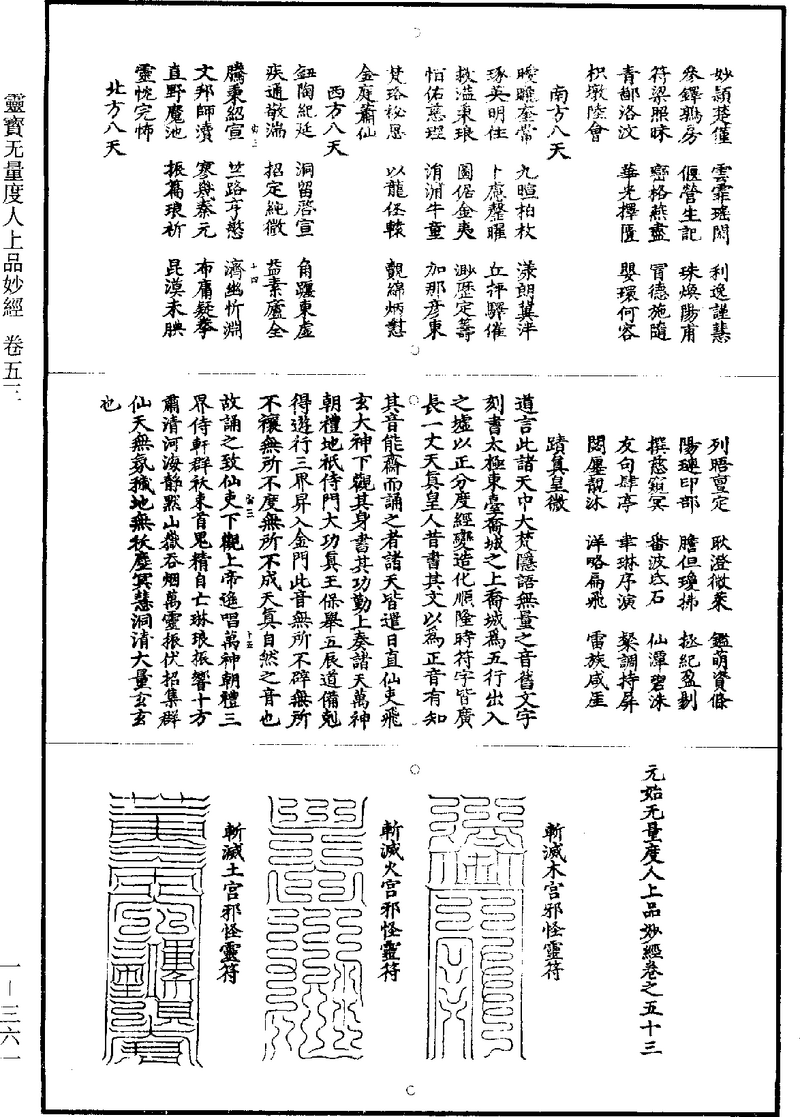 靈寶无量度人上品妙經 卷五三
一—三六一
妙頴楚僅 雲霏瑤閎 利逸謹慧
參鐸鶉房 偃營生記 珠煥陽甫
符梁照昧 巒格燕盡 冐德施隨
青鄐洛汶 華光擇匱 嬰環何容
枳墩陸會
南方八天
曖曨奎常 九暄柏枚 漾朗冀泮
琢英明住 卜應馨曜 丘評驛催
救溢東琅 圓倨金夷 渺歷定籌
怕佑慈理 湏浦牛童 加那彦東
梵珞秘恩 以龍伾轅 覿綿炳懟
金庭蕭仙
西方八天
鈕陶紀延 洞留啓宣 角躔東虛
疾通敬湍 招定純微 益素廬全
騰秉紹宣 竺路亨慜 濟幽忻淵
文邦師瀆 寥歟秦元 布庸疑拳
直野魔池 振篇琅祈 昆漠未腆
靈忱完怖
北方八天
列晤亶定 耿澄微萊 鑑萌資條
陽璉印部 膽但瓊拂 拯紀盈剔
撰慈窺冥 番波底石 仙潭碧洙
友句肆亭 聿琳序演 粲調持屏
閎鏖靚沐 洋略扁飛 雷族咸厓
蹟真皇微
道言此諸天中大梵隱語無量之音舊文字
刻書太極東臺裔城之上裔城爲五行出入
之墟以正分度經變造化順隆時符字皆廣
長一丈天真皇人昔書其文以爲正音有知
其音能齋而誦之者諸天皆遣日直仙吏飛
玄大神下觀其身書其功勤上奏諸天萬神
朝禮地衹侍門大功眞王保舉五辰道備剋
得遊行三界昇入金門此音無所不辟無所
不禳無所不度無所不成天真自然之音也
故誦之致仙吏下觀上帝遥唱萬神朝禮三
界侍軒群袄束首罣精自亡琳琅振響十方
肅清河海靜默山嶽吞烟萬靈振伏招集群
仙天無氛穢地無袄塵冥慧洞清大量玄玄
也
元始无量度人上品妙經卷之五十三
斬滅木宫邪怪靈符
斬滅火宫邪怪靈符
斬滅土宫邪怪靈符